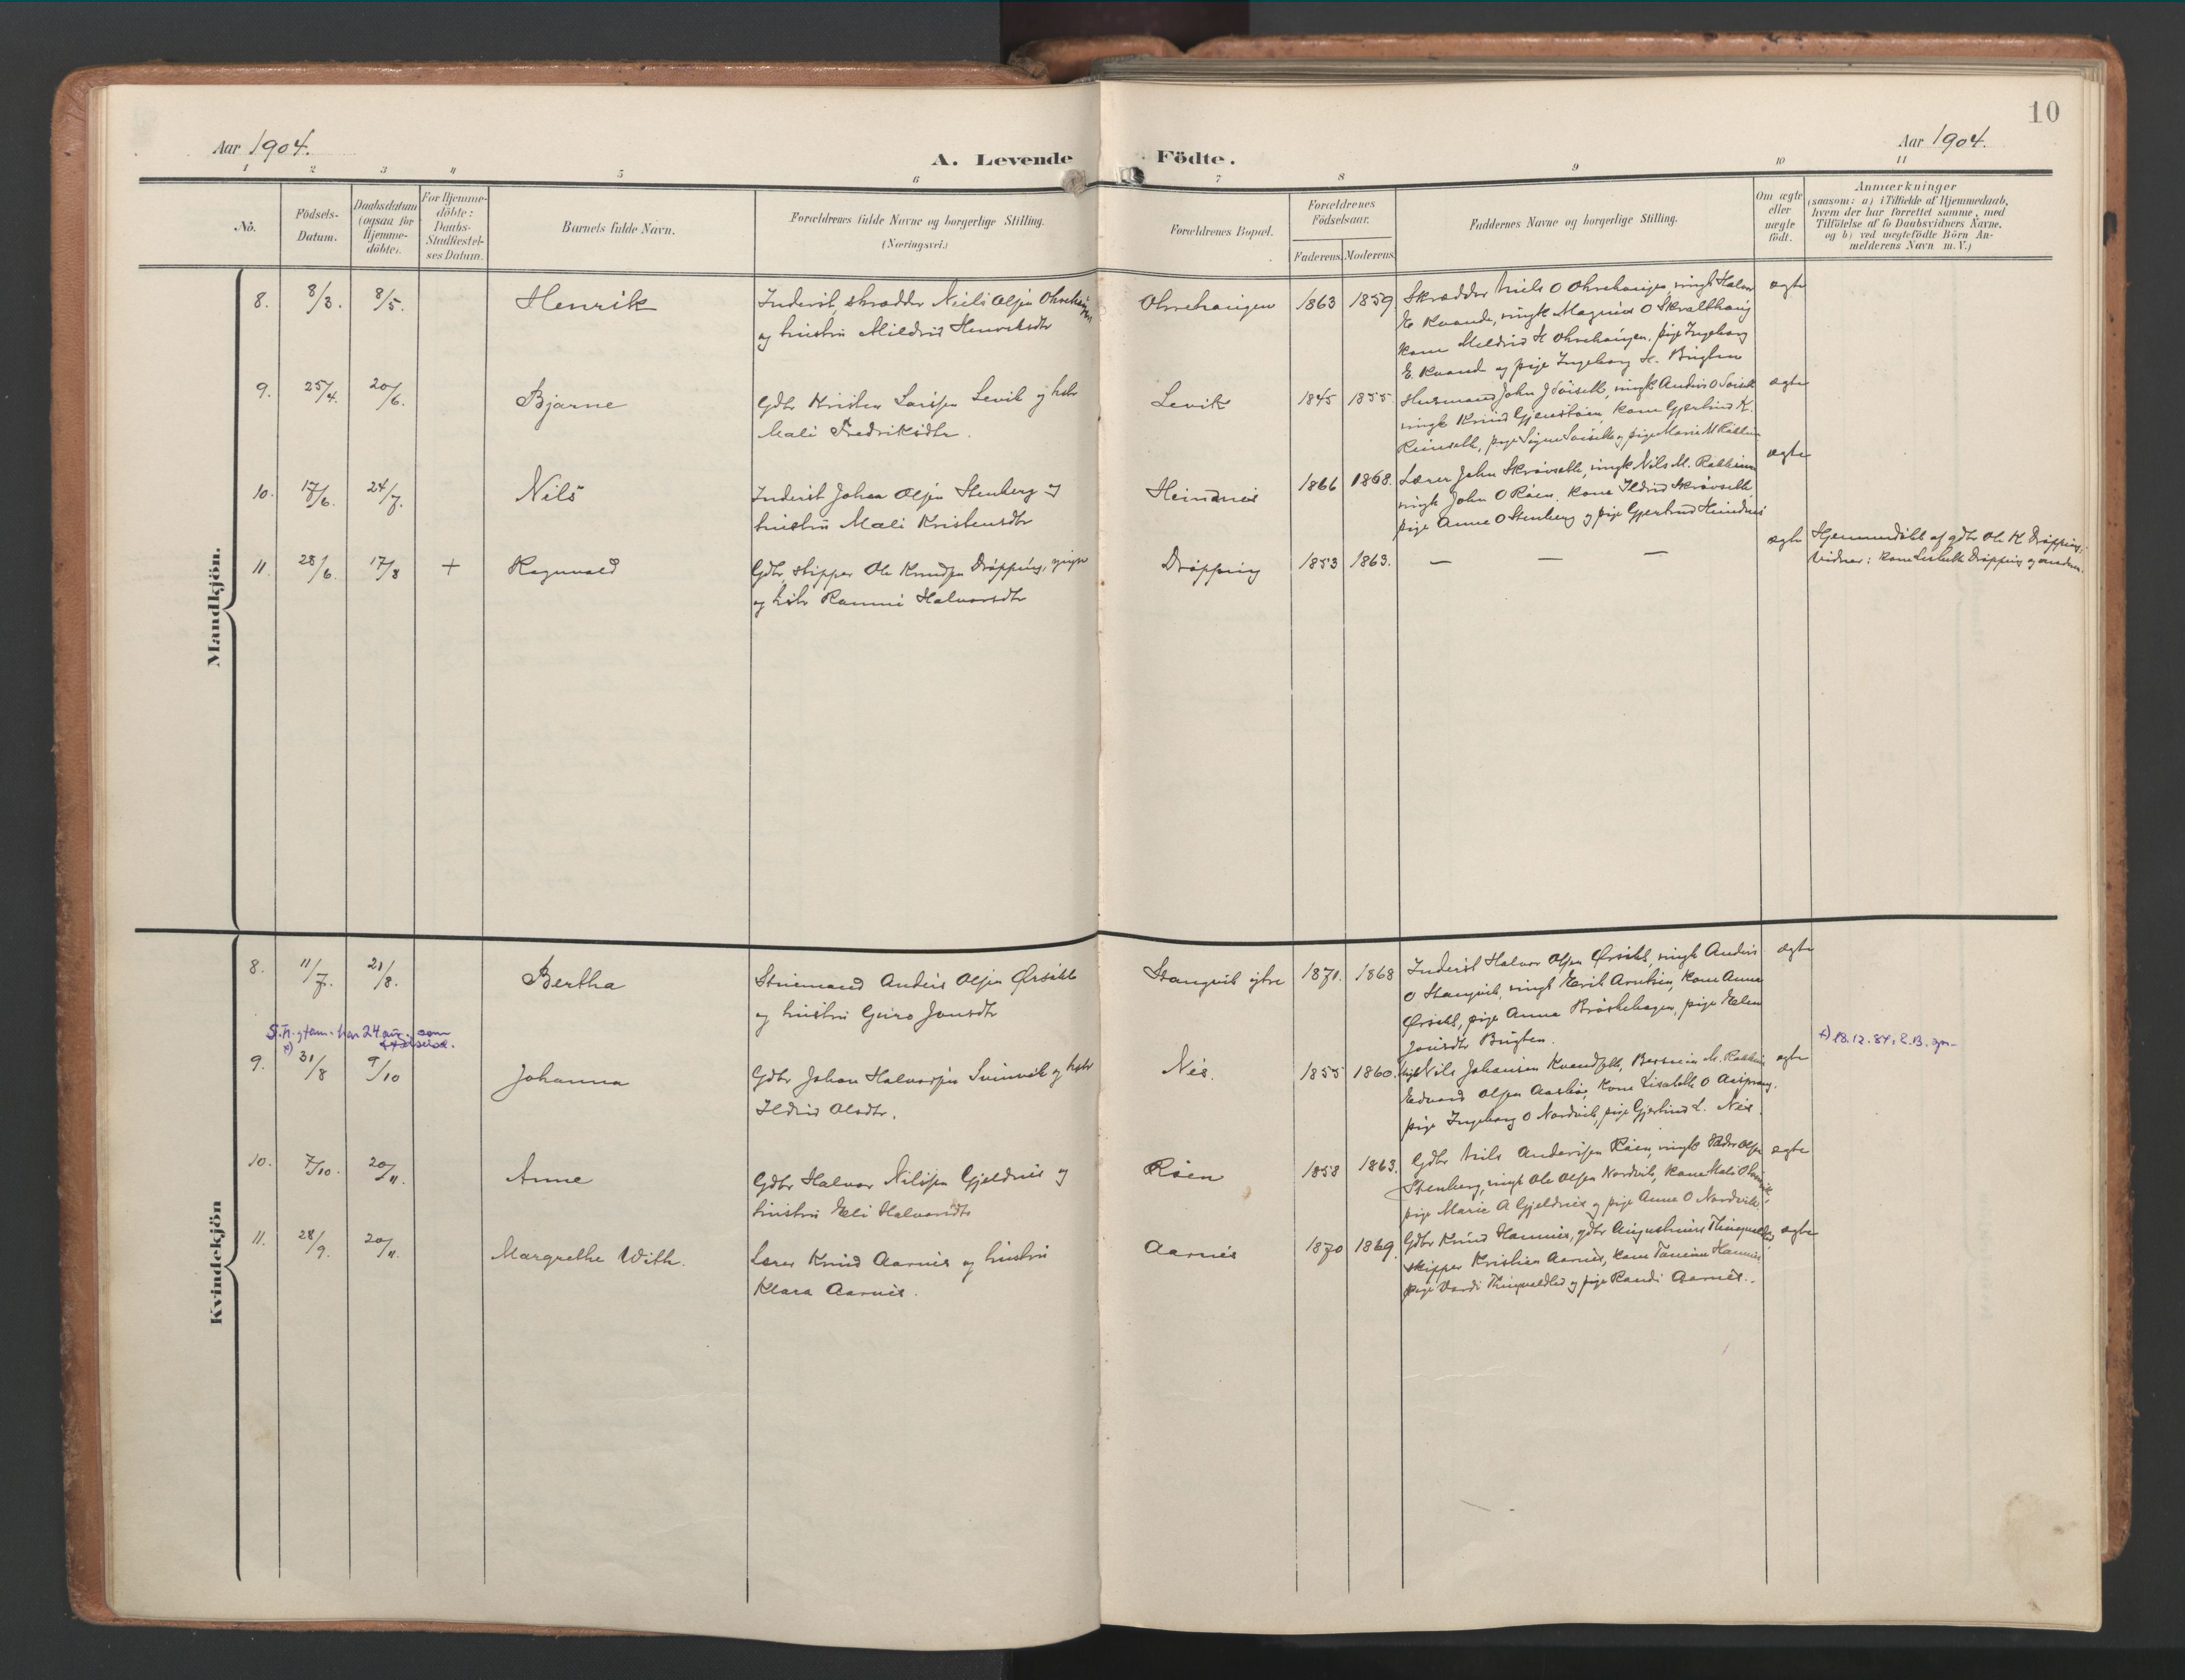 10
Aar 1904.
A. Levende Födte.
Aar 1904.
1 2 3 4 5 6 7 8 9 10 11
No.
Födsels-
Datum.
Daabsdatum
(ogsaa for
Hjemme-
döbte).
For Hjemme-
döbte:
Daabs-
Stadfæstel-
ses Datum.
Barnets fulde Navn.
Forældrenes fulde Navne og borgerlige Stilling.
(Næringsvei.)
Forældrenes Bopæl.
Forældrenes
Födselsaar.
Faderens. Moderens.
Faddernes Navne og borgerlige Stilling.
Om ægte
eller
uægte
födt.
Anmærkninger
(saasom: a) i Tilfælde af Hjemmedaab,
hvem der har forrettet samme, med
Tilföielse af to Daabsvidners Navne,
og b) ved uægtefödte Börn An-
melderens Navn m. V.)
Mandkjön.
8. 8/3. 8/5. Henrik
og hustru Mildrid Henriksdtr
Ohrehaugen 1863 1859
Skrædder Niels O Ohrehaugen, ungk Halvor
E. Kvande, ungk Magnus O Skralthaug
kone Mildrid H Ohrehaugen, pige Ingeborg
E. Kvande og pige Ingeborg H. Bugten
ægte
9. 25/4. 20/6. Bjarne
Gdbr Kristen Larsen Levik og hstr
Mali Fredriksdtr.
Levik 1845 1855.
Husmand John J Söiseth, ungk Anders O Soiseth
ungk Knud Gjenstöen, kone Gjertrud K.
ægte
10. 17/6. 24/7. Nils
Inderst Johan Olsen Stenberg og
hustru Mali Kristensdtr
Heindnes 1866 1868.
Lærer John Skrövseth, ungk Nils M. Rakkem
ungk John O Röen, kone Ildrid Skrövseth
pige Anne O Stenberg og pige Gjertrud Heindnes
ægte
11. 28/6. 17/8 + Ragnvald
Gdbr, skipper Ole Knudsen Dröpping, yngre
og hstr Rannei Halvorsdtr
Dröpping 1853 1863.
— — —
ægte
Hjemmedöbt af gdbr Ole K Dröpping;
Kvindekjön
8. 11/7. 21/8. Bertha
Struemand Anders Olsen Ørsæth
og hustru Guro Jonsdtr
Stangvik ytre 1871. 1868
Inderst Halvor Olsen Ørsæth, ungk Anders
O Stangvik, ungk Erik Arntsen, kone Anne
Ørsæth, pige Anne Bröskehagen, pige Elen
Jonsdtr Bugten.
ægte
x) 18.12.84, E.B. spr.
9. 31/8 9/10 Johanna
Gdbr Johan Halvorsen Svinvik og hstr
Ildrid Olsdtr.
Nes. 1855 1860.
pige Ingeborg O Nordvik, pige Gjertrud L. Nes.
ægte
10. 7/10. 20/11. Anne
Gdbr Halvor Nilsen Gjeldnes og
hustru Eli Halvorsdtr
Röen 1858 1863.
Gdbr Nils Andersen Röen, ungk Peder Olsen
Stenberg, ungk Ole Olsen Nordvik, kone Mali O
pige Marie A Gjeldnes og pige Anne O Nordvik.
ægte
11. 28/9. 20/11. Margrethe With.
Lærer Knud Aarnes og hustru
Klara Aarnes.
Aarnes 1870 1869.
Gdbr Knud Hamnes, gdbr Augustinus
skipper Kristian Aarnes, kone Hamnes
pige og pige Randi Aarnes.
ægte